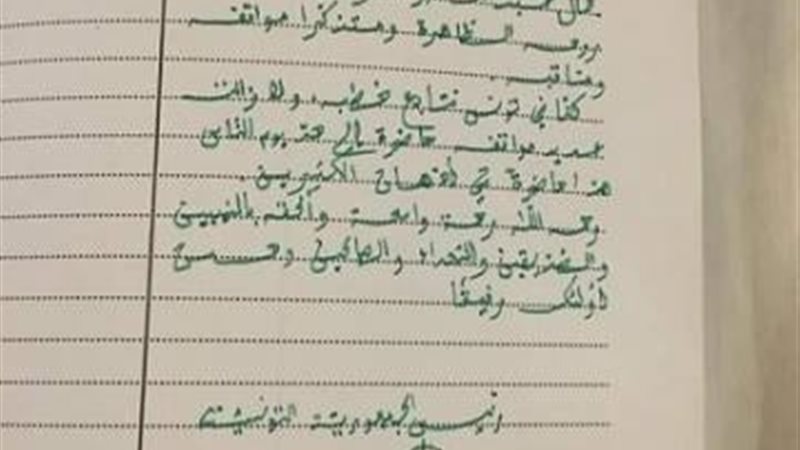 جمال عبد
روحه الطاهرة ومستذكرا مواقفه
ومناقبه.
كنا في تونس نتابع خطبه، ولا زالت
عديد مواقفه حاضرة إلى حد يوم الناس
هذا حاضرة في أذهان الكثيرين.
رحمه الله رحمة واسعة وألحقه بالنبيين
والصديقين والشهداء والصالحين وحسن
أولئك رفيقا
رئيس الجمهورية التونسية